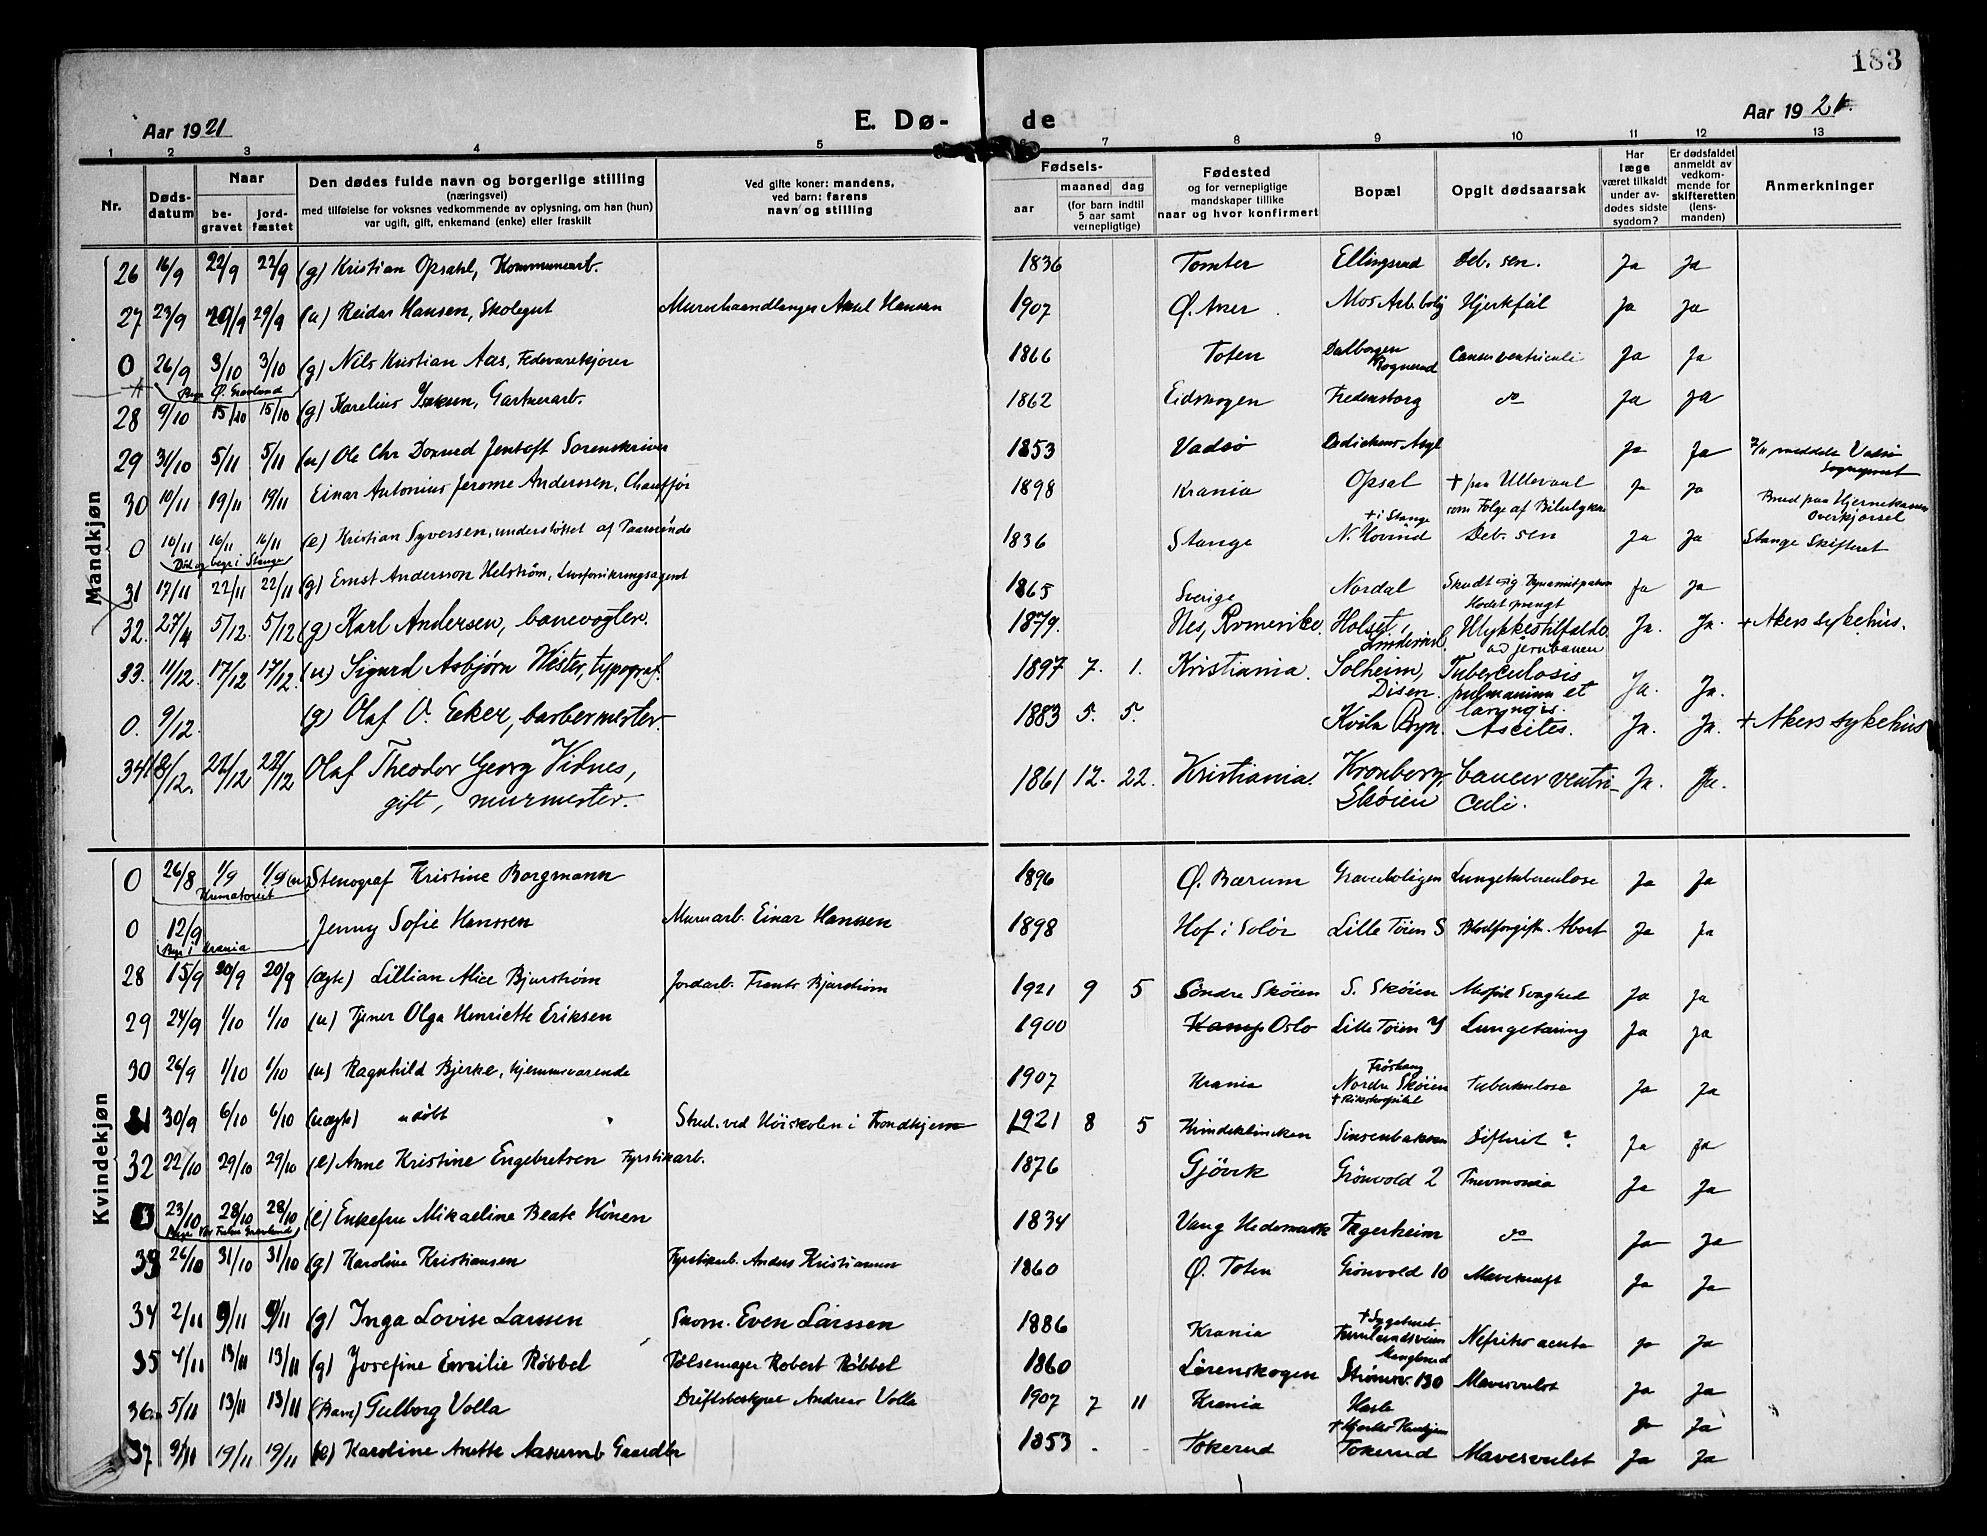 183
Aar 1921
E. Dø- de
Aar 1921.
1 2 3 4 5 6 7 8 9 10 11 12 13
Nr.
Døds-
datum
Naar
be-
gravet
jord-
fæstet
Den dødes fulde navn og borgerlige stilling
(næringsvei)
med tilføielse for voksnes vedkommende av oplysning, om han (hun)
var ugift, gift, enkemand (enke) eller fraskilt
Ved gifte koner: mandens,
ved barn: farens
navn og stilling
Fødsels-
aar
maaned dag
(for barn indtil
5 aar samt
vernepligtige)
Fødested
og for vernepligtige
mandskaper tillike
naar og hvor konfirmert
Bopæl
Opgit dødsaarsak
Har
læge
været tilkaldt
under av-
dødes sidste
sygdom?
Er dødsfaldet
anmeldt av
vedkom-
mende for
skifteretten
(lens-
manden)
Anmerkninger
Mandkjøn
26 16/9 22/9 22/9 (g) Kristian Opsahl, Kommunearb. 1836 Tomter Ellingsrud Deb. sen. Ja Ja
27 23/9 29/9 29/9 (u) Reidar Hansen, Skolegut Murerhaandlanger Aksel Hansen 1907 Ø. Aker Mos Arb.bolig Hjerkfeil Ja Ja
0 26/9 3/10 3/10 (g) Nils Kristian Aas, Fedevarekjører 1866 Toten Dalborgen Rognerud Cancer ventriculi Ja Ja
Begr. Ø. Gravlund
28 9/10 15/10 15/10 (g) Karelius Gartnerarb. 1862 Eidskogen Fredensborg do Ja Ja
29 31/10 5/11 5/11 (u) Ole Chr Jentoft Sorenskriver 1853 Vadsø Dedichens Asyl Ja Ja 7/11 meddelt Vadsø
Sogneprest
30 10/11 19/11 19/11 Einar Antonius Jerome Anderssen, Chauffør 1898 Krania Opsal + paa Ullevaal
som Følge af Bilulykke Ja Ja Brud paa Hjernekassen
Overkjørsel
0 10/11 16/11 16/11 (e) Kristian Syversen, understøttet af Paarørende 1836 Stange + i Stange
N. Hovind Deb. sen Ja Ja Stange Skifteret
Død og begr i Stange
31 17/11 22/11 22/11 (g) Ernst Andersson Helström, Livsforsikringsagent 1865 Sverige Nordal Skudt sig Dynamitpatron
Hodet sprengt Ja Ja
32. 27/4 5/12. 5/12 (g) Karl Andersen, banevogter. 1879. Nes, Romerike. Holset,
Linderud. Ulykkestilfælde
ved jernbanen Ja. Ja. + Akers sykehus.
33. 11/12. 17/12 17/12. (u) Sigurd Asbjørn Wister, typograf. 1897 7. 1. Kristiania. Solheim,
Disen. Tuberculosis
pulmonum et
laryngis. Ja. Ja.
0. 9/12. (g) Olaf O. Eeker, barbermester. 1883 5. 5. Kvila Bryn. Ascites. Ja. Ja. + Akers sykehus
34 18/12. 22/12 22/12 Olaf Theodor Georg Vidnes,
gift, murmester. 1861 12. 22. Kristiania. Kronborg,
Skøien Cancer ventri-
culi. Ja. Ja.
Kvindekjøn
0 26/8 1/9 1/9 (u) Stenograf Kristine Borgmann 1896 Ø. Bærum Graverboligen Lungetuberculose Ja Ja
Krematoriet
0 12/9 Jenny Sofie Hanssen Murarb. Einar Hanssen 1898 Hof i Solør Lille Tøien S Blodforgift. Abort Ja Ja
Begr i Krania
28 15/9 20/9 20/9 (ægte) Lillian Alice Bjurstrøm Jordarb. Frants Bjurstrøm 1921 9 5 Søndre Skøien S. Skøien Medfød Svaghed Ja Ja
29 24/9 1/10 1/10 (u) Tjener Olga Henriette Eriksen 1900 Kamp Oslo Lille Tøien Y Lungetæring Ja Ja
30 26/9 1/10 1/10 (u) Ragnhild Bjerke, hjemmeværende 1907 Krania Frøshaug
Nordre Skøien
+ Rikshospital Tuberkulose Ja Ja
31 30/9 6/10 6/10 (uægte) udøbt Stud. ved Høiskolen i Trondhjem 1921 8 5 Kvindeklinikken Sinsenbakken Difterit ? Ja Ja
32 22/10 29/10 29/10 (e) Anne Kristine Engebretsen Fyrstikarb. 1876 Gjøvik Grønvold 2 Pneumonia Ja Ja
0 23/10 28/10 28/10 (e) Enkefru Mikaeline Beate Hönen 1834 Vang Hedemark Fagerheim do Ja Ja
Begr. Vor Frelsers Gravlund
33 26/10 31/10 31/10 (g) Karoline Kristiansen Fyrstikarb. Anders Kristiansen 1860 Ø. Toten Grönvold 10 Mavekræft Ja Ja
34 2/11 9/11 9/11 (g) Inga Lovise Larssen Skom. Even Larssen 1886 Krania + Sygehuset
Manglerud Nefritis acuta Ja Ja
35 4/11 13/11 13/11 (g) Josefine Emilie Røbbel Pølsemager Robert Røbbel 1860 Lørenskogen Strömsv. 130 Mavesvulst Ja Ja
36 5/11 13/11 13/11 (Barn) Gulborg Volla Driftsbestyrer Andreas Volla 1907 7 11 Krania Hasle Ja Ja
37 9/11 19/11 19/11 (e) Karoline Anette Gaardbr 1853 Tokerud Tokerud Mavesvulst Ja Ja